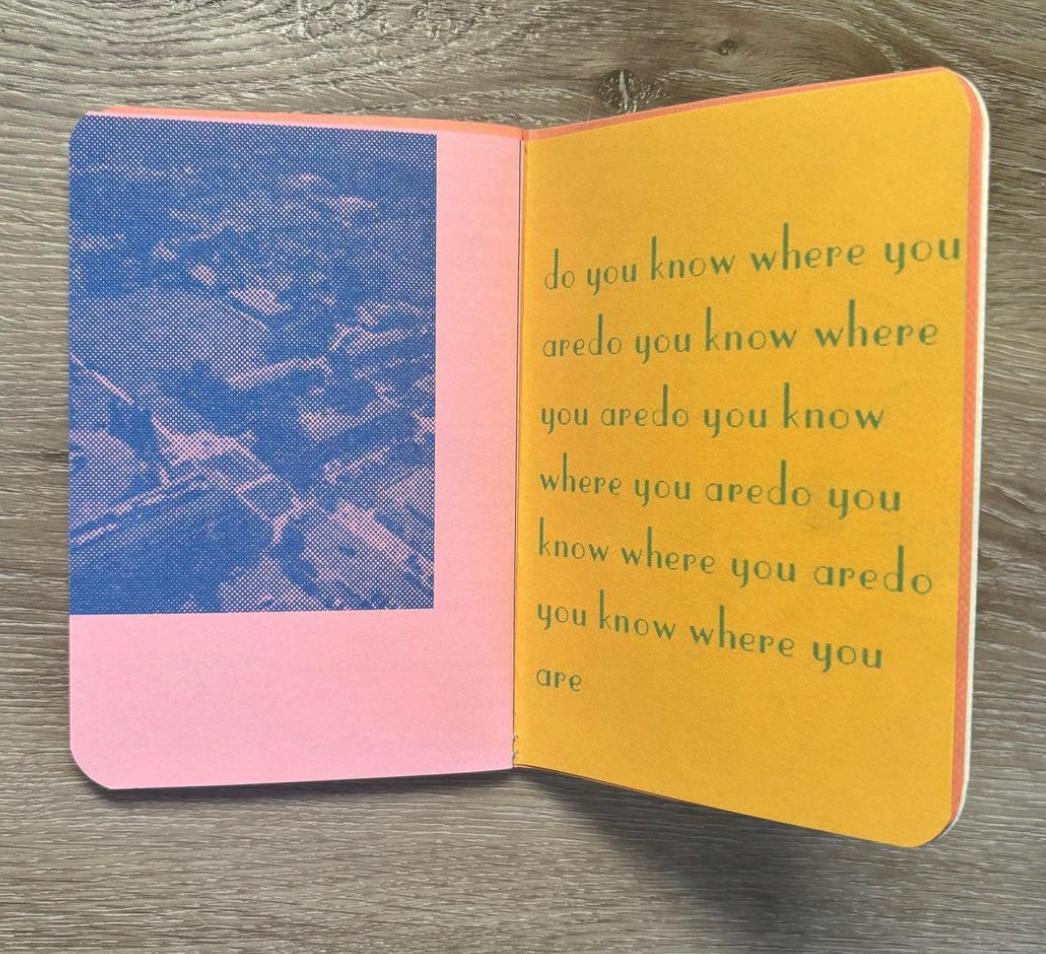 do you know where you
aredo you know where
you aredo you know
where you aredo you
know where you aredo
you know where you
are